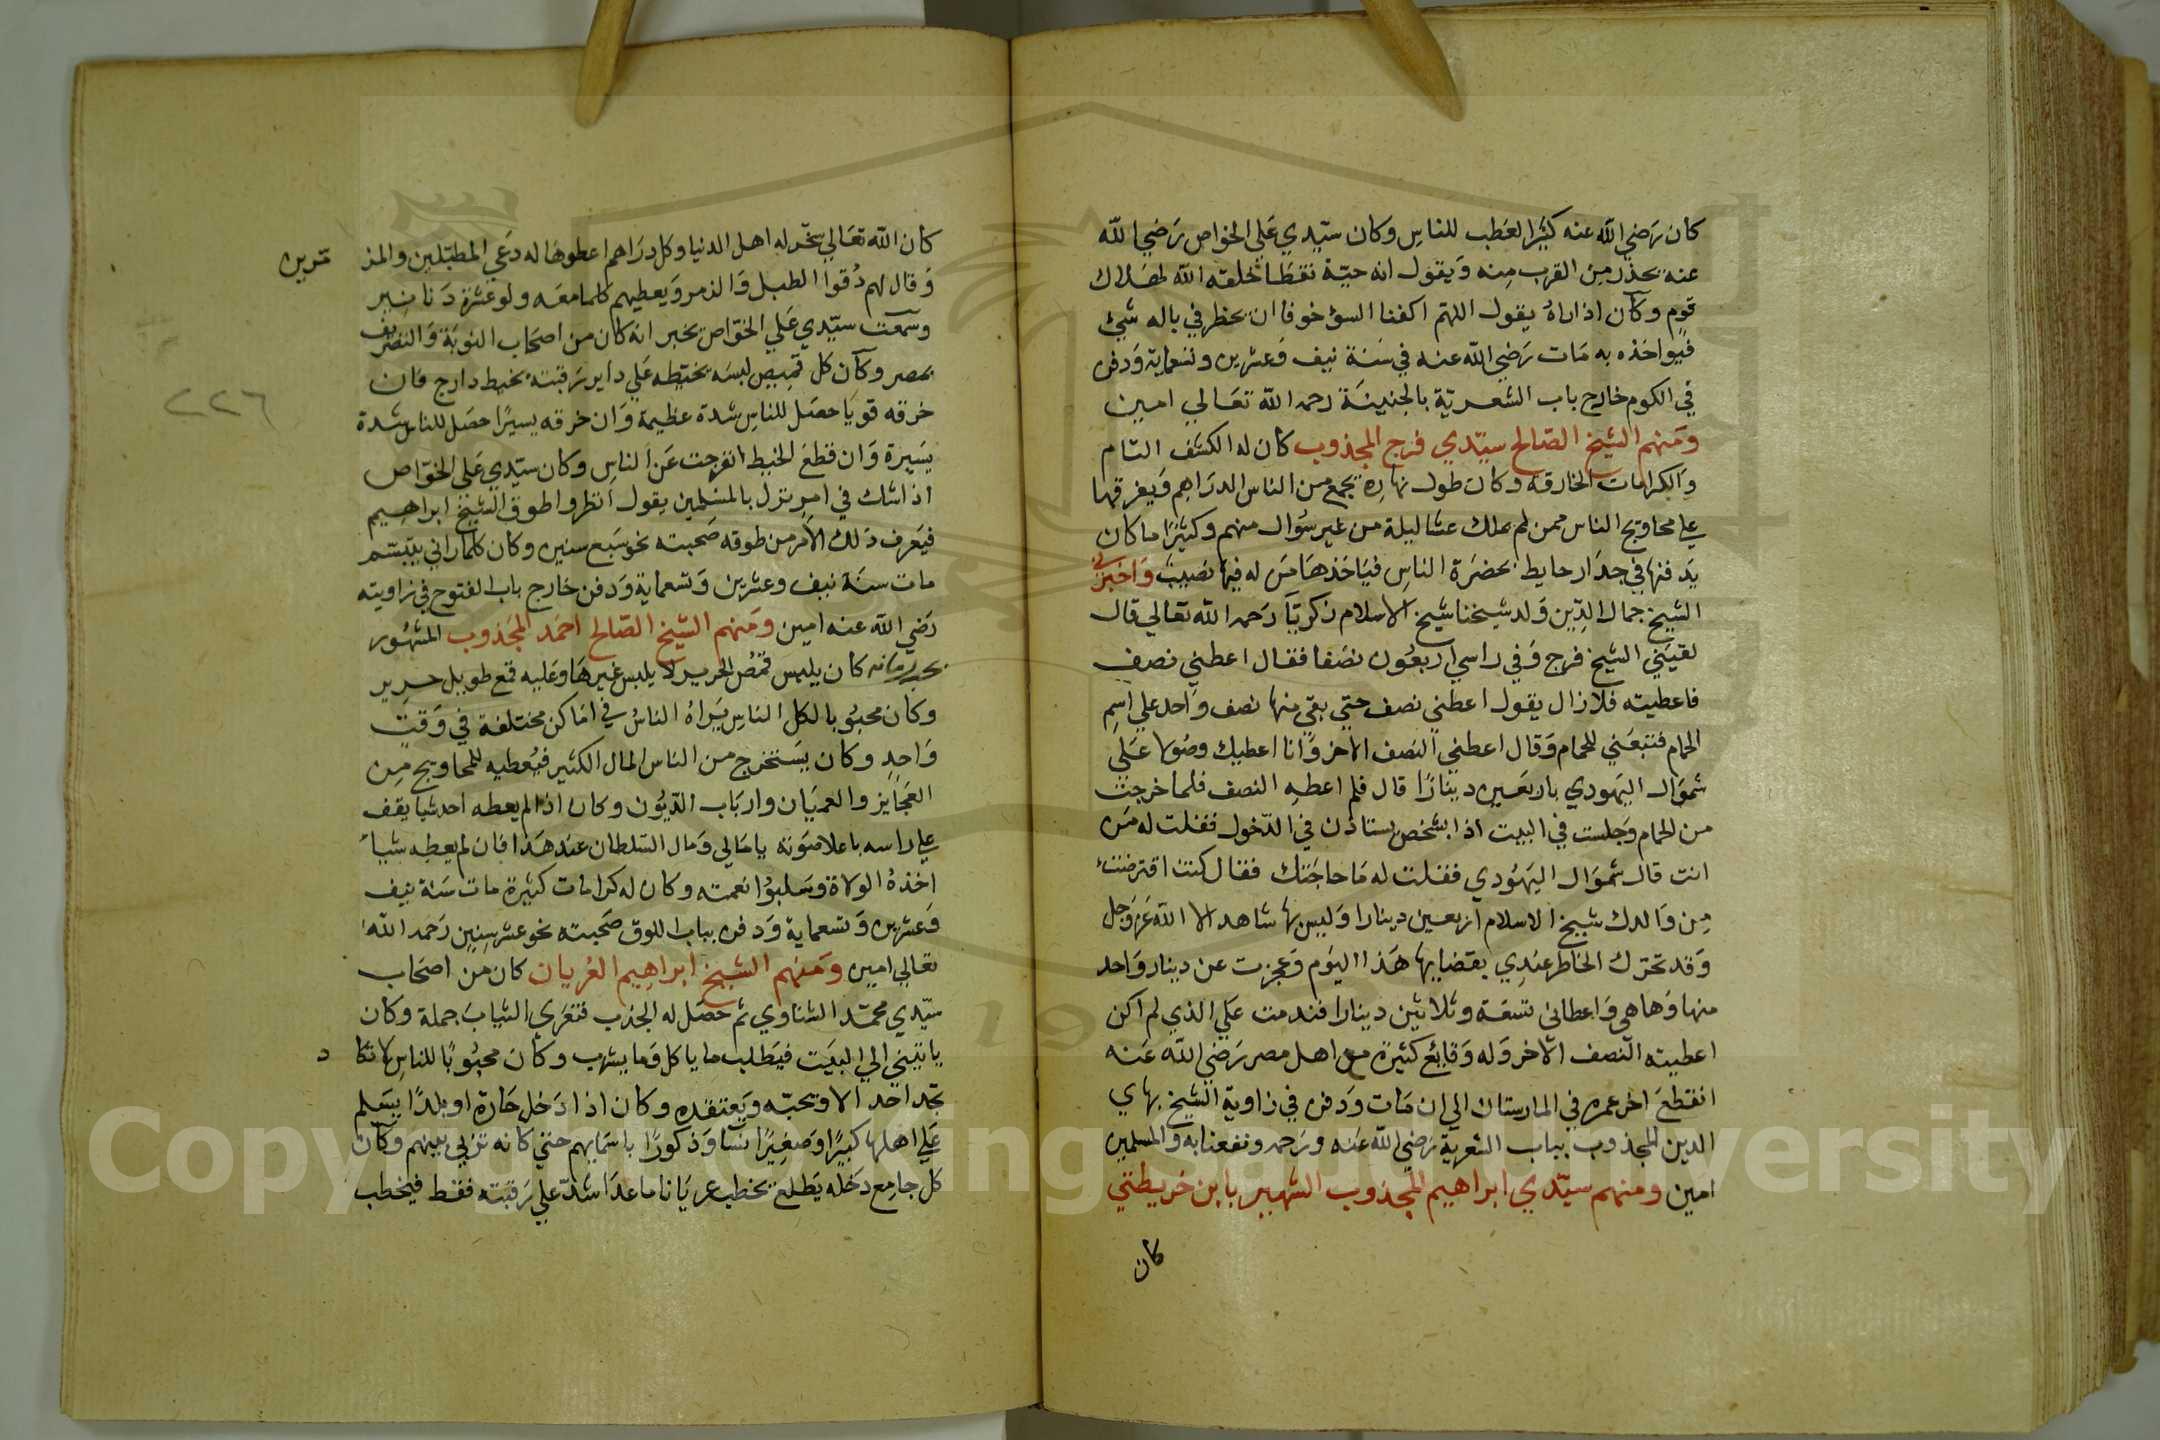 كان رضي الله عنه كثير العطب للناس وكان سيدي علي الخواص رضي الله
عنه يحذر من القرب منه ويقول انه حية نقطا خلقه الله لهلاك
قوم وكان اذا راه يقول اللهم اكفنا السؤ خوفا ان يخطر في باله شئ
فيواخذه به مات رضي الله عنه في سنة نيف وعشرين وتسعماية ودفن
في الكوم خارج باب الشعرية بالجنينة رحمه الله تعالي امين
ومنهم الشيخ الصالح سيدي فرج المجذوب كان له الكشف التام
والكرامات الخارقة وكان طول نهاره يجمع من الناس الدراهم ويفرقها
علي محاويج الناس ممن لم يملك عشا ليلة من غير سؤال منهم وكثيرا ما كان
يدفنها في جدار حايط بحضرة الناس فياخذها من له فيها نصيب واخبرني
الشيخ جمال الدين ولد شيخنا شيخ الاسلام زكريا رحمه الله تعالي قال
لقيني الشيخ فرج وفي راسي اربعون نصفا فقال اعطني نصف
فاعطيته فلا زال يقول اعطني نصف حتي بقي منها نصف واحد علي اسم
الحمام فتبعني للحمام وقال اعطني النصف الاخر وانا اعطيك وصولا علي
شموال اليهودي باربعين دينارا قال فلم اعطه النصف فلما خرجت
من الحمام وجلست في البيت اذا بشخص يستاذن في الدخول فقلت له من
انت قال شموال اليهودي فقلت له ما حاجتك فقال كنت اقترضت
من والدك شيخ الاسلام اربعين دينارا وليس بها شاهد الا الله عز وجل
وقد تحرك الخاطر عندي بقضايها هذا اليوم وعجزت عن دينار واحد
منها وها هي واعطاني تسعة وثلاثين دينارا فندمت علي الذي لم اكن
اعطيته النصف الاخر وله وقايع كثيرة مع اهل مصر رضي الله عنه
انقطع اخر عمره في المارستان الي ان مات ودفن في زاوية الشيخ بهاي
الدين المجذوب بباب الشعرية رضي الله عنه ورحمه ونفعنا به والمسلمين
امين ومنهم سيدي ابراهيم المجذوب الشهير بابن خريطتي
كان
كان الله تعالي سخر له اهل الدنيا وكل دراهم اعطوها له دعي المطبلين والمز
مرين
وقال لهم دقوا الطبل والزمر ويعطيهم كلما معه ولو عشرة دنانير
وسمعت سيدي علي الخواص يخبر انه كان من اصحاب النوبة والتصريف
بمصر وكان كل قميص لبسه يخيطه علي داير رقبته بخيط دارج فان
خرقه قويا حصل للناس شدة عظيمة وان خرقه يسيرا حصل للناس شدة
يسيرة وان قطع الخيط انفرجت عن الناس وكان سيدي علي الخواص
اذا شك في امر ينزل بالمسلمين يقول انظروا طوق الشيخ ابراهيم
فيعرف ذلك الامر من طوقه صحبته نحو سبع سنين وكان كلما راني يتبسم
مات سنة نيف وعشرين وتسعماية ودفن خارج باب الفتوح في زاويته
رضي الله عنه امين ومنهم الشيخ الصالح احمد المجذوب المشهور
كان يلبس قمص الحرير لا يلبس غيرها وعليه قمع طويل حرير
وكان محبوبا لكل الناس يراه الناس في اماكن مختلفة في وقت
واحد وكان يستخرج من الناس المال الكثير فيعطيه للمحاويج من
العجايز والعميان وارباب الديون وكان اذا لم يعطه احد شيا يقف
علي راسه باعلا صوته يا مالي ومال السلطان عند هذا فان لم يعطه شياء
اخذه الولاة وسلبوا نعمته وكان له كرامات كثيرة مات سنة نيف
وعشرين وتسعماية ودفن بباب اللوق صحبته نحو عشر سنين رحمه الله
تعالي امين ومنهم الشيخ ابراهيم العريان كان من اصحاب
سيدي محمد الشناوي ثم حصل له الجذب فتعري الثياب جملة وكان
ياتيني الي البيت فيطلب ما ياكل وما يشرب وكان محبوبا للناس لا تكا
د
تجد احد الا ويحبه ويعتقده وكان اذا دخل حارة او بلدا يسلم
علي اهلها كبيرا وصغيرا نسا وذكورا باسمايهم حتي كانه تربي بينهم وكان
كل جامع دخله يطلع يخطب عريانا ما عدا شد علي رقبته فقط فيخطب
٢٢٦
Copyright © King Saud University